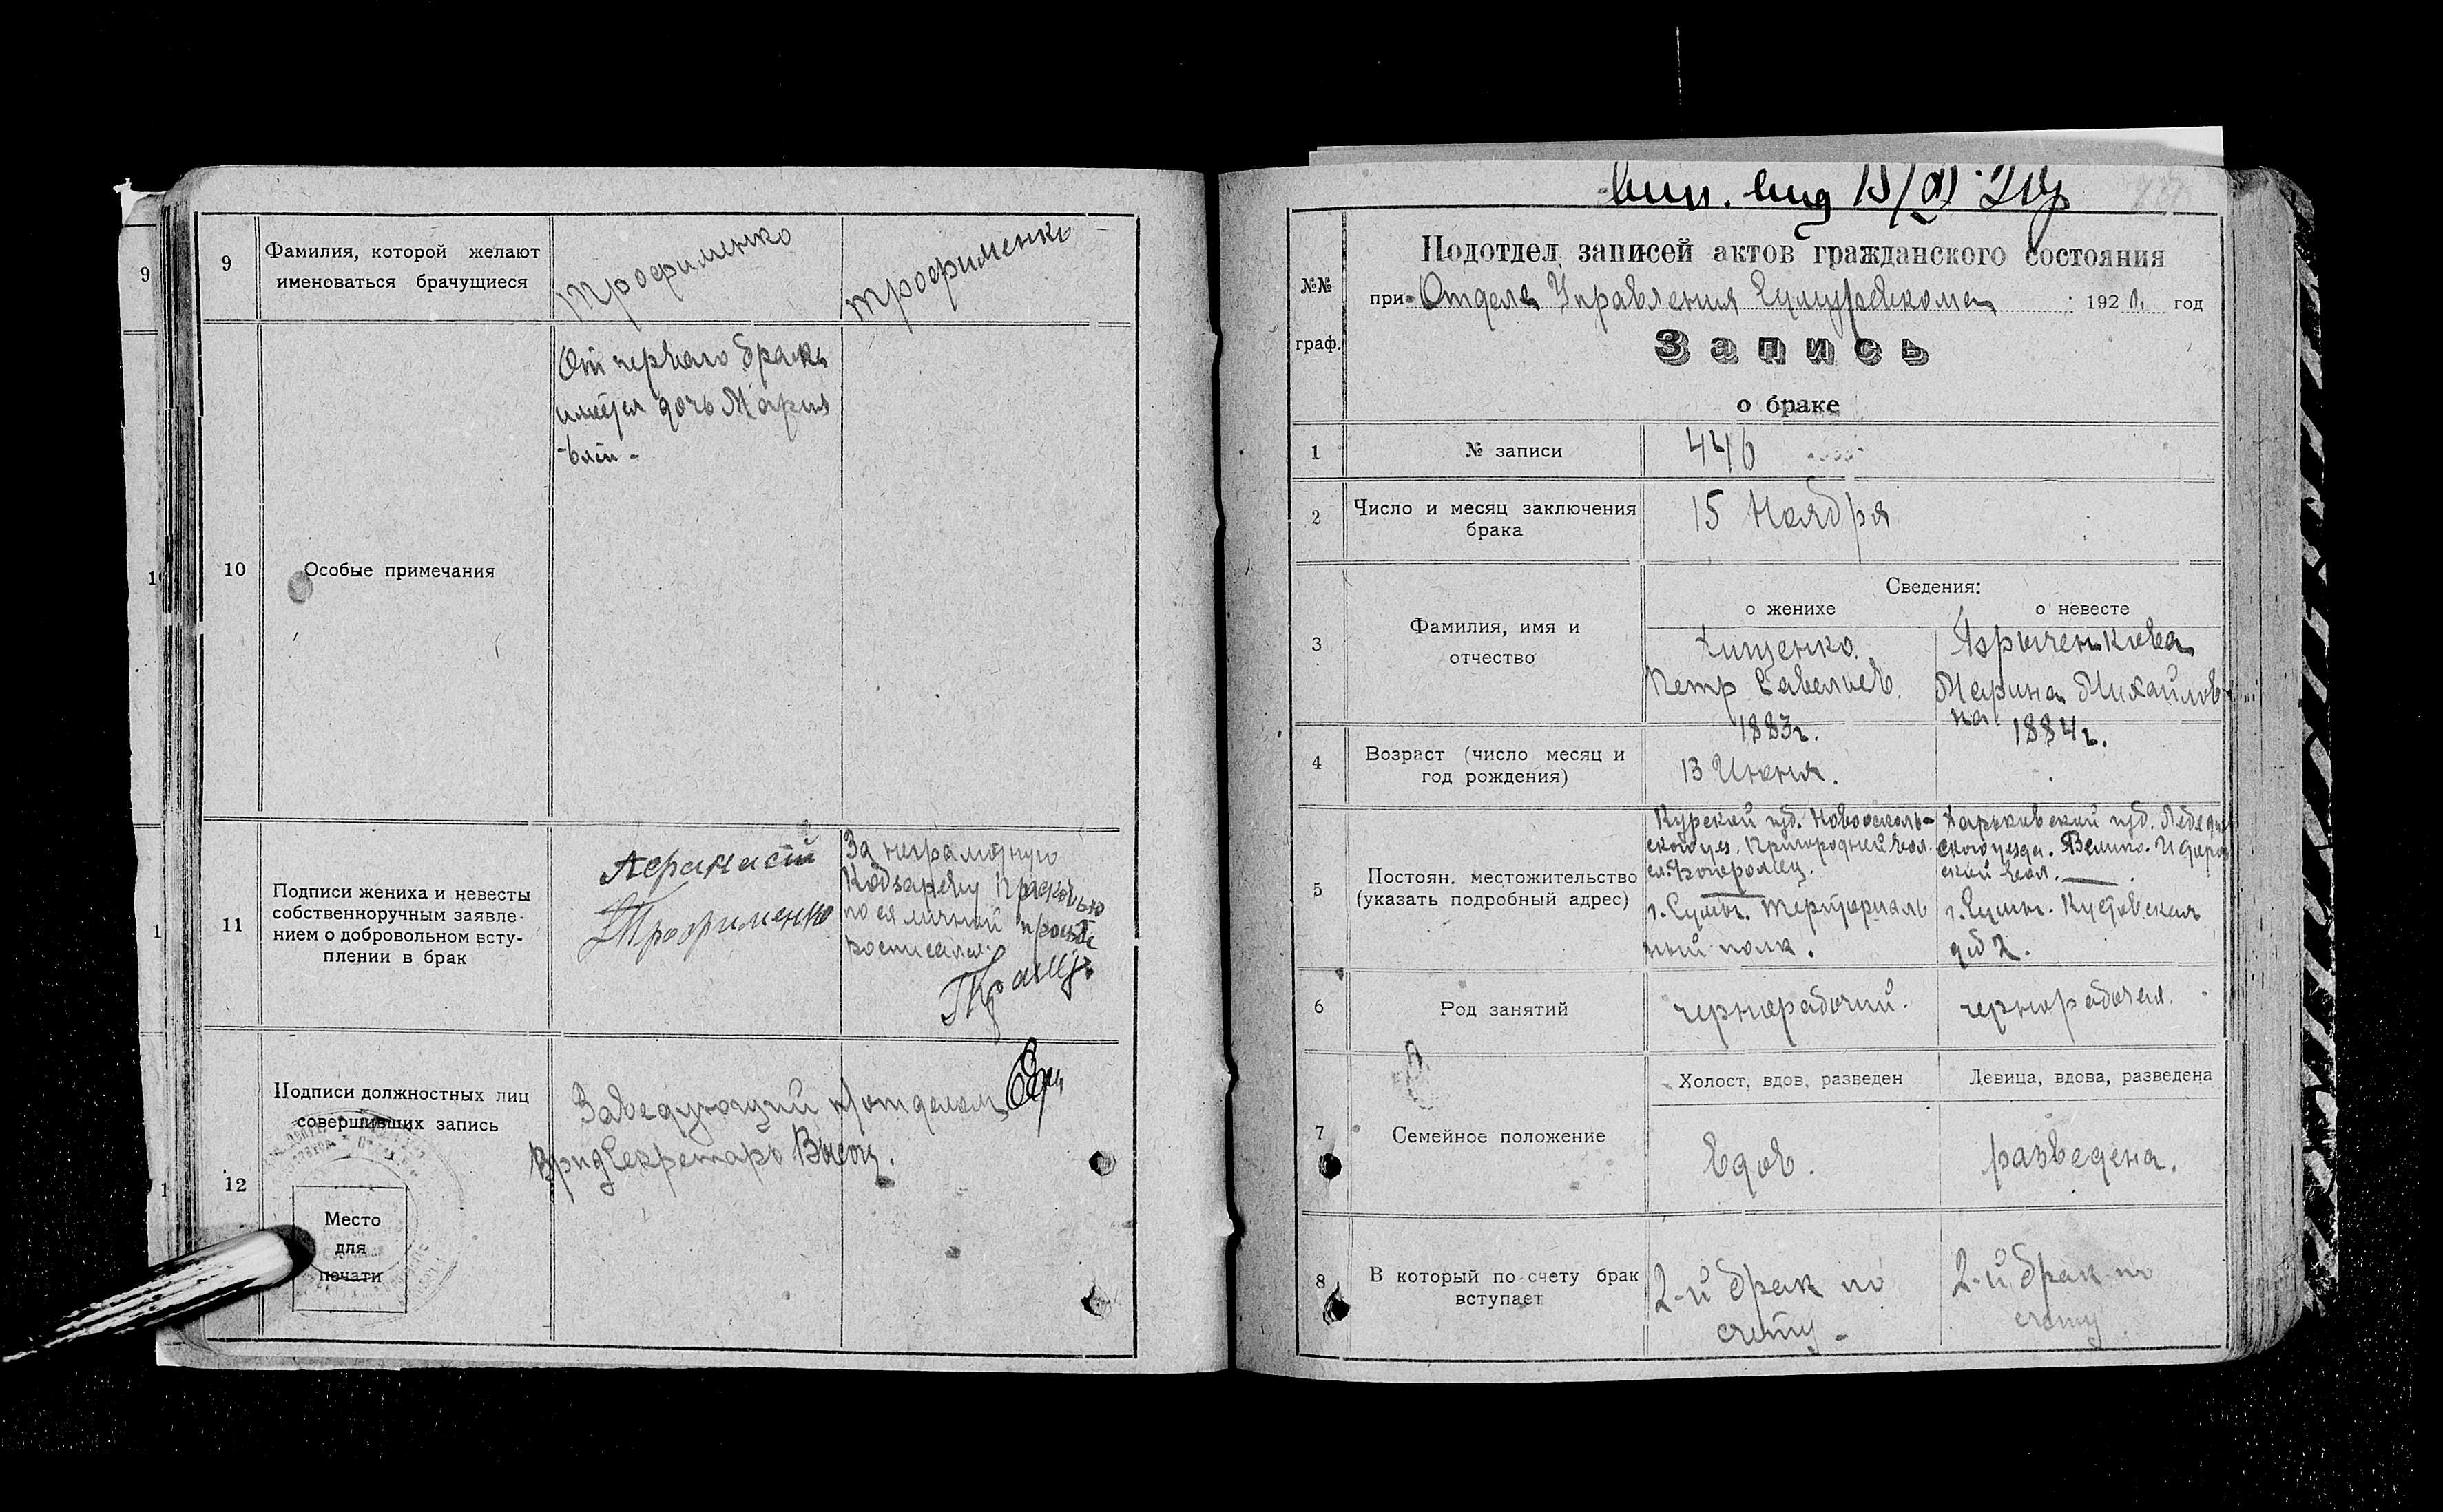 9
Фамилия, которой желают
именоваться брачущиеся
Трофименко
Трофименко
10
Особые примечания
От первого брака
имеется дочь Мария
11
Подписи жениха и невесты
собственноручным заявле-
нием о добровольном всту-
плении в брак
Афанасий
Трофименко
За неграмотную
Прасковью
по ея личной просьбе
росписался
12
Подписи должностных лиц
совершивших запись
Заведующий п/отделом
Врид Секретарь
Место
для
печати
вып. вид 15/XI 20г
№№
граф.
Подотдел записей актов гражданского состояния
при Отделе Управления Сумуревкома 1920 год
Запись
о браке
1
№ записи
446
2
Число и месяц заключения
брака
15 Ноября
Сведения:
о женихе
о невесте
3
Фамилия, имя и
отчество
Петр Савельев.
1883г.
Марина Михайлов
на 1884г.
4
Возраст (число месяц и
год рождения)
13 Июня.
5
Постоян. местожительство
(указать подробный адрес)
Курской губ. Новоосколь-
ского уез. Пригородней вол.
г. Сумы. Территориаль
ный полк.
Харьковской губ. Лебедин
ского уезда.
ской вол.
г. Сумы. Кустовская
д 2.
6
Род занятий
чернорабочий.
чернорабочая.
7
Семейное положение
Холост, вдов, разведен
Девица, вдова, разведена
Вдов.
разведена.
8
В который по счету брак
вступает
2-й брак по
счету
2-й брак по
счету